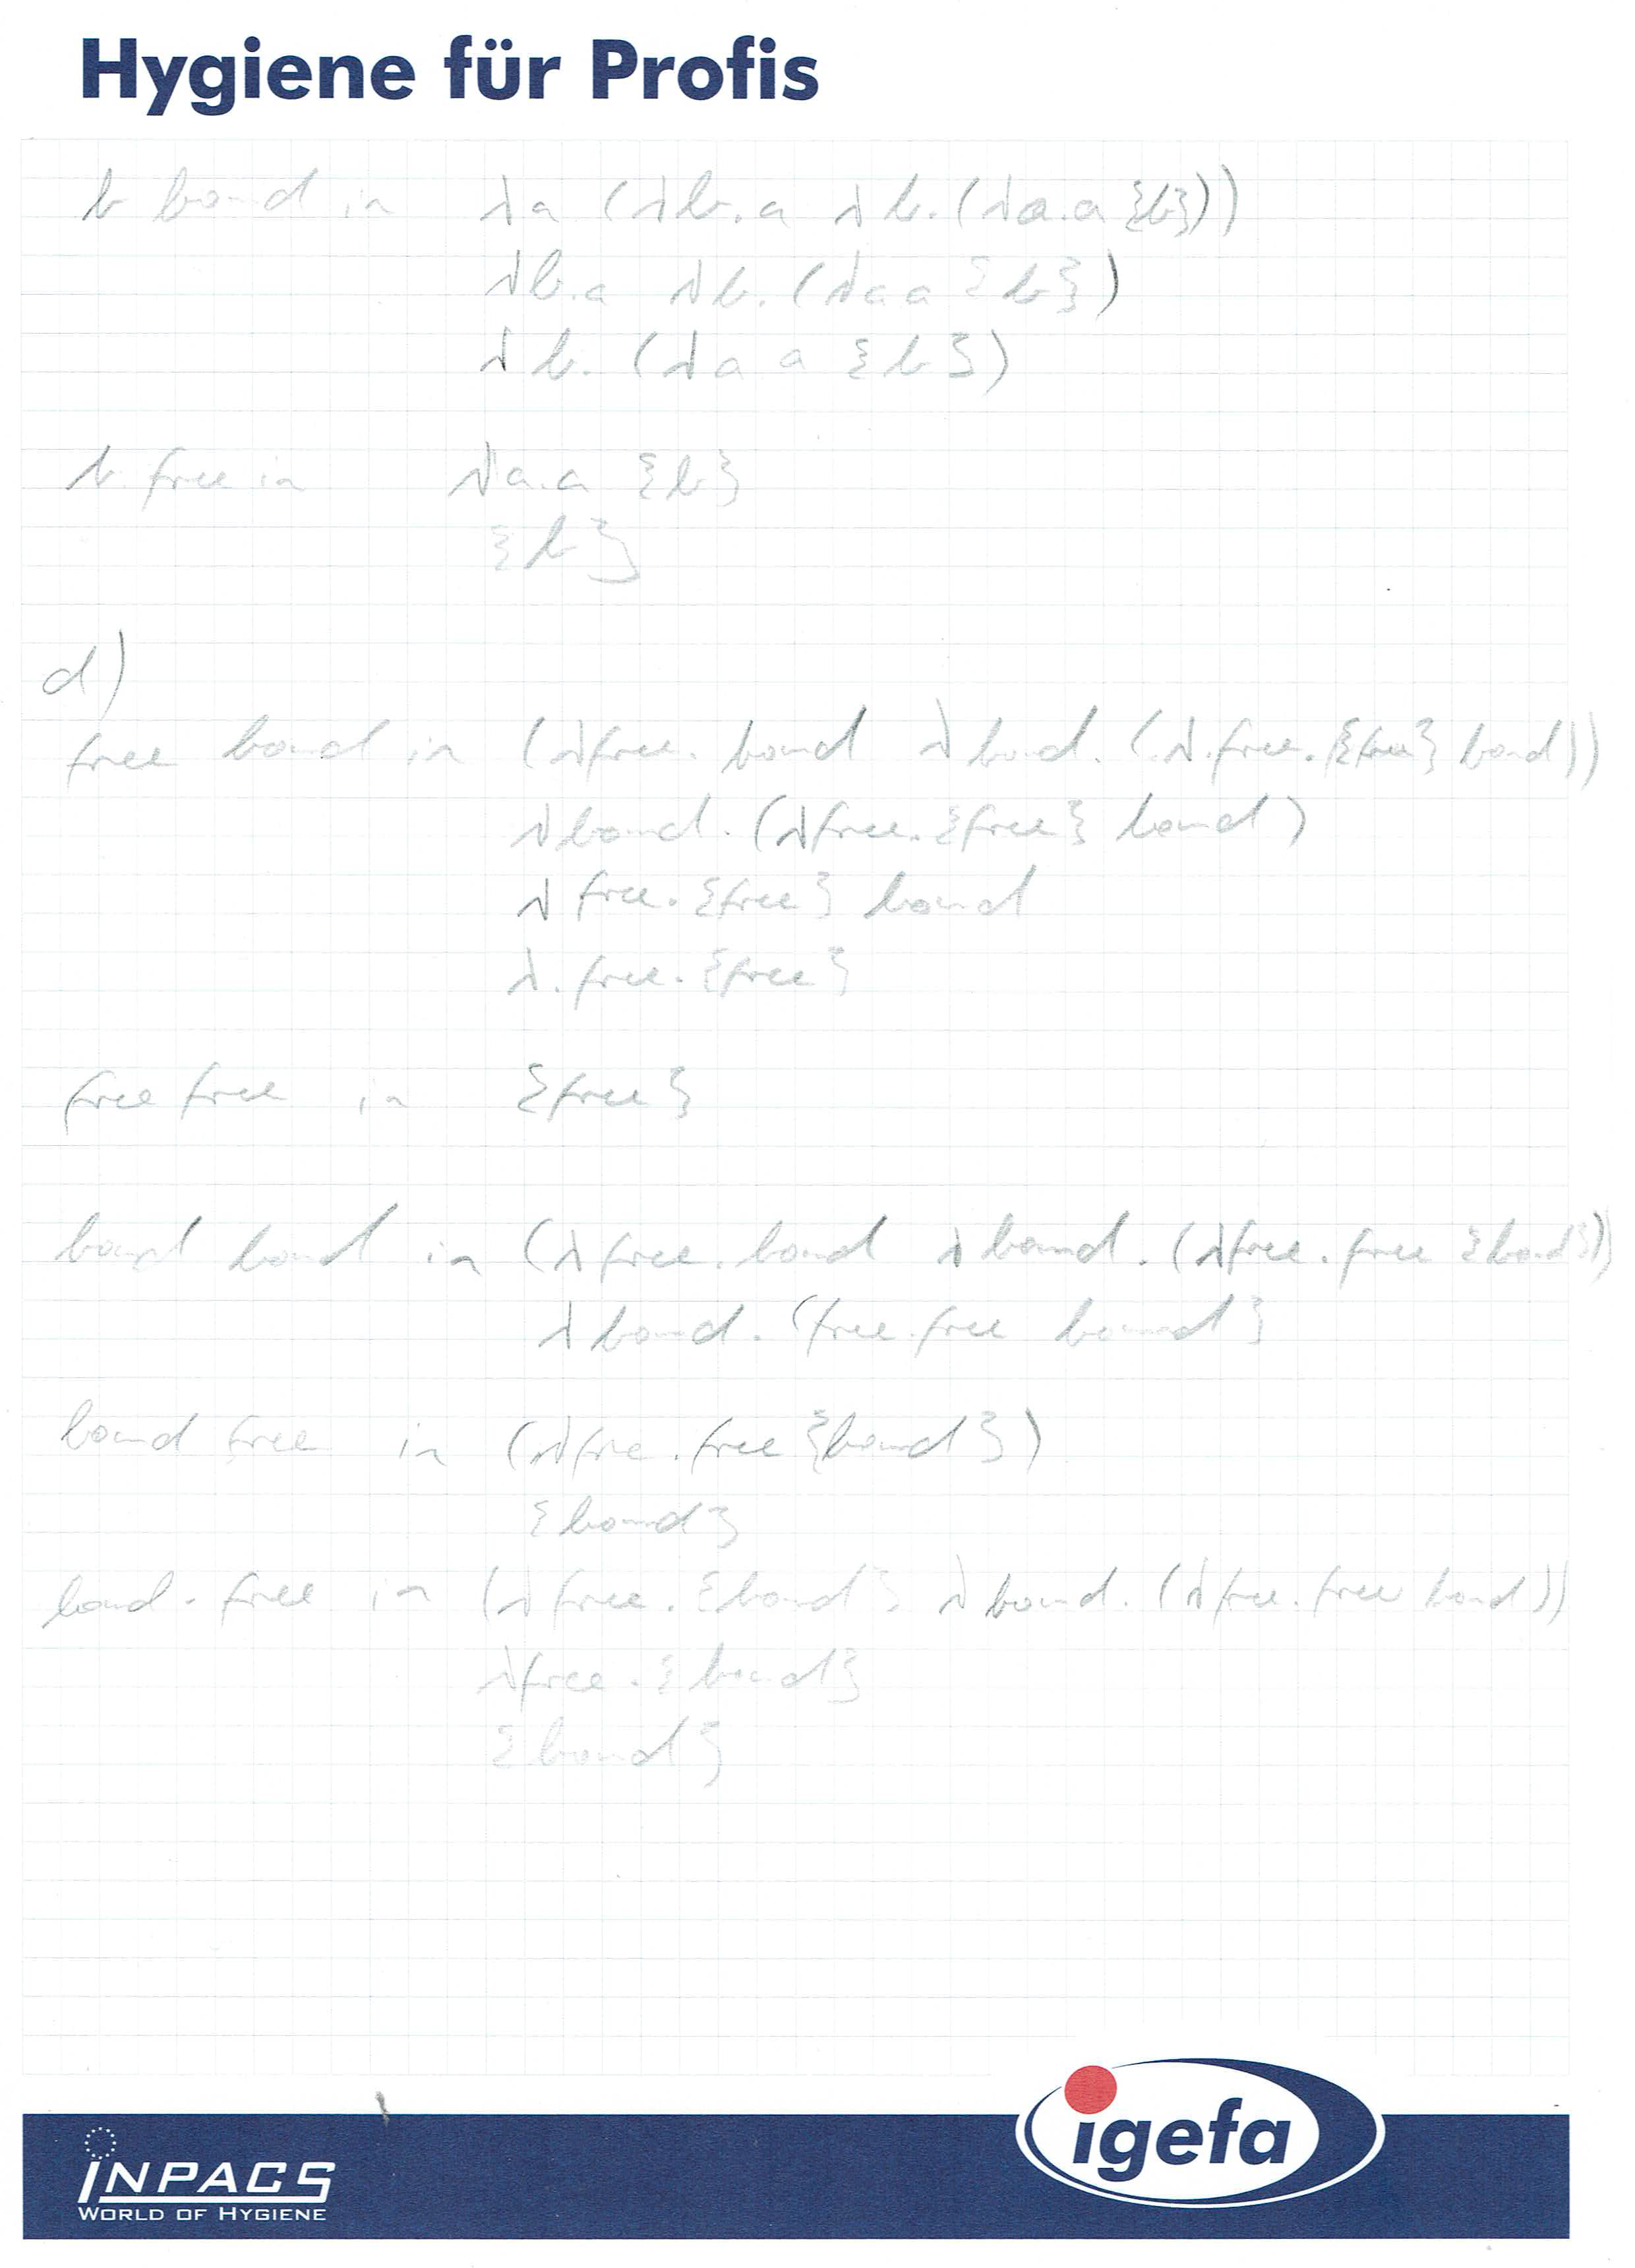 Hygiene für Profis
b bound in λa (λb.a λb.(λa.a {b}))
λb.a λb.(λa a {b})
λb.(λa a {b})
b free in λa.a {b}
{b}
d)
free bound in (λfree. bound λbound.(λ.free.{free} bound))
λbound.(λfree.{free} bound)
λfree.{free} bound
λ.free.{free}
free free in {free}
bound bound in (λfree.bound λbound.(λfree.free {bound}))
λbound.(free.free bound}
bound free in (λfree.free {bound})
{bound}
bound free in (λfree.{bound} λbound.(λfree.free bound))
λfree.{bound}
{bound}
igefa
INPACS
WORLD OF HYGIENE